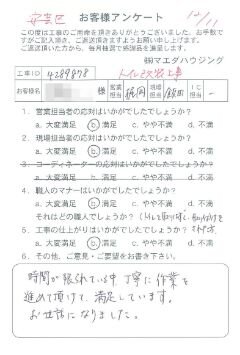 安芸区 お客様アンケート 12/11
この度は工事のご用命を頂きありがとうございました。お手数で
すがご記入頂き、ご返送頂きますようお願い申し上げます。
ご返送頂いた方から、毎月抽選で粗品を進呈します。
㈱マエダハウジング
工事ID 4289878 トイレ
お客様名 様 営業担当 現場担当 飯田 IC担当 -
1. 営業担当者の応対はいかがでしたでしょうか?
a. 大変満足 b. 満足 c. やや不満 d. 不満
2. 現場担当者の応対はいかがでしたでしょうか?
a. 大変満足 b. 満足 c. やや不満 d. 不満
3. コーディネーターの応対はいかがでしたでしょうか?
a. 大変満足 b. 満足 c. やや不満 d. 不満
4. 職人のマナーはいかがでしたでしょうか?
a. 大変満足 b. 満足 c. やや不満 d. 不満
それはどの職人でしょうか?
5. 工事の仕上がりはいかがでしたでしょうか?
a. 大変満足 b. 満足 c. やや不満 d. 不満
6. その他、ご意見・ご要望をお書き下さい。
時間が限られている中、丁寧に作業を
進めて頂けて、満足しています。
お世話になりました。